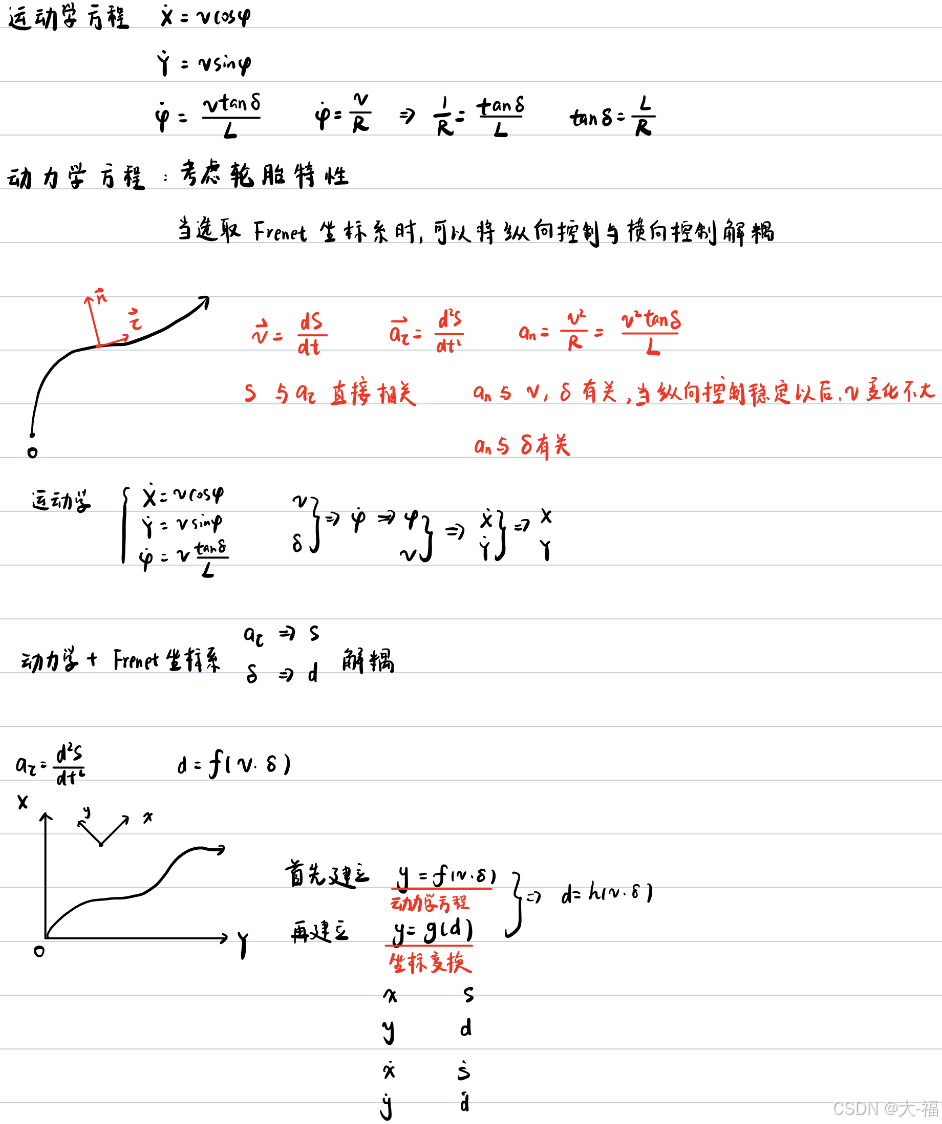 运动学方程 Ẋ = vcosφ
Ẏ = vsinφ
φ̇ = vtanδ/L φ̇ = v/R ⇒ 1/R = tanδ/L tanδ = L/R
动力学方程：考虑轮胎特性
当选取 Frenet 坐标系时，可以将纵向控制与横向控制解耦
n⃗
τ⃗
v⃗ = ds/dt a⃗τ = d²s/dt² an = v²/R = v²tanδ/L
S 与 aτ 直接相关 an与 v, δ 有关，当纵向控制稳定以后，v变化不大
an与 δ有关
O
运动学 { Ẋ = vcosφ
Ẏ = vsinφ
φ̇ = v tanδ/L
v δ } ⇒ φ̇ ⇒ φ v } ⇒ Ẋ Ẏ } ⇒ X Y
动力学 + Frenet 坐标系 aτ ⇒ s
δ ⇒ d 解耦
aτ = d²s/dt² d = f(v. δ)
X y x
O Y
首先建立 y = f(v. δ) } ⇒ d = h(v. δ)
动力学方程
再建立 y = g(d)
坐标变换
x s
y d
ẋ ṡ
ẏ ḋ
CSDN @大-福